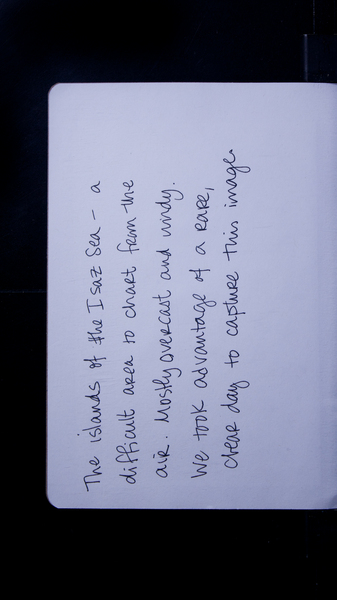 The islands of the Isaz Sea - a
difficult area to chart from the
air. Mostly overcast and windy.
We took advantage of a rare,
clear day to capture this image.